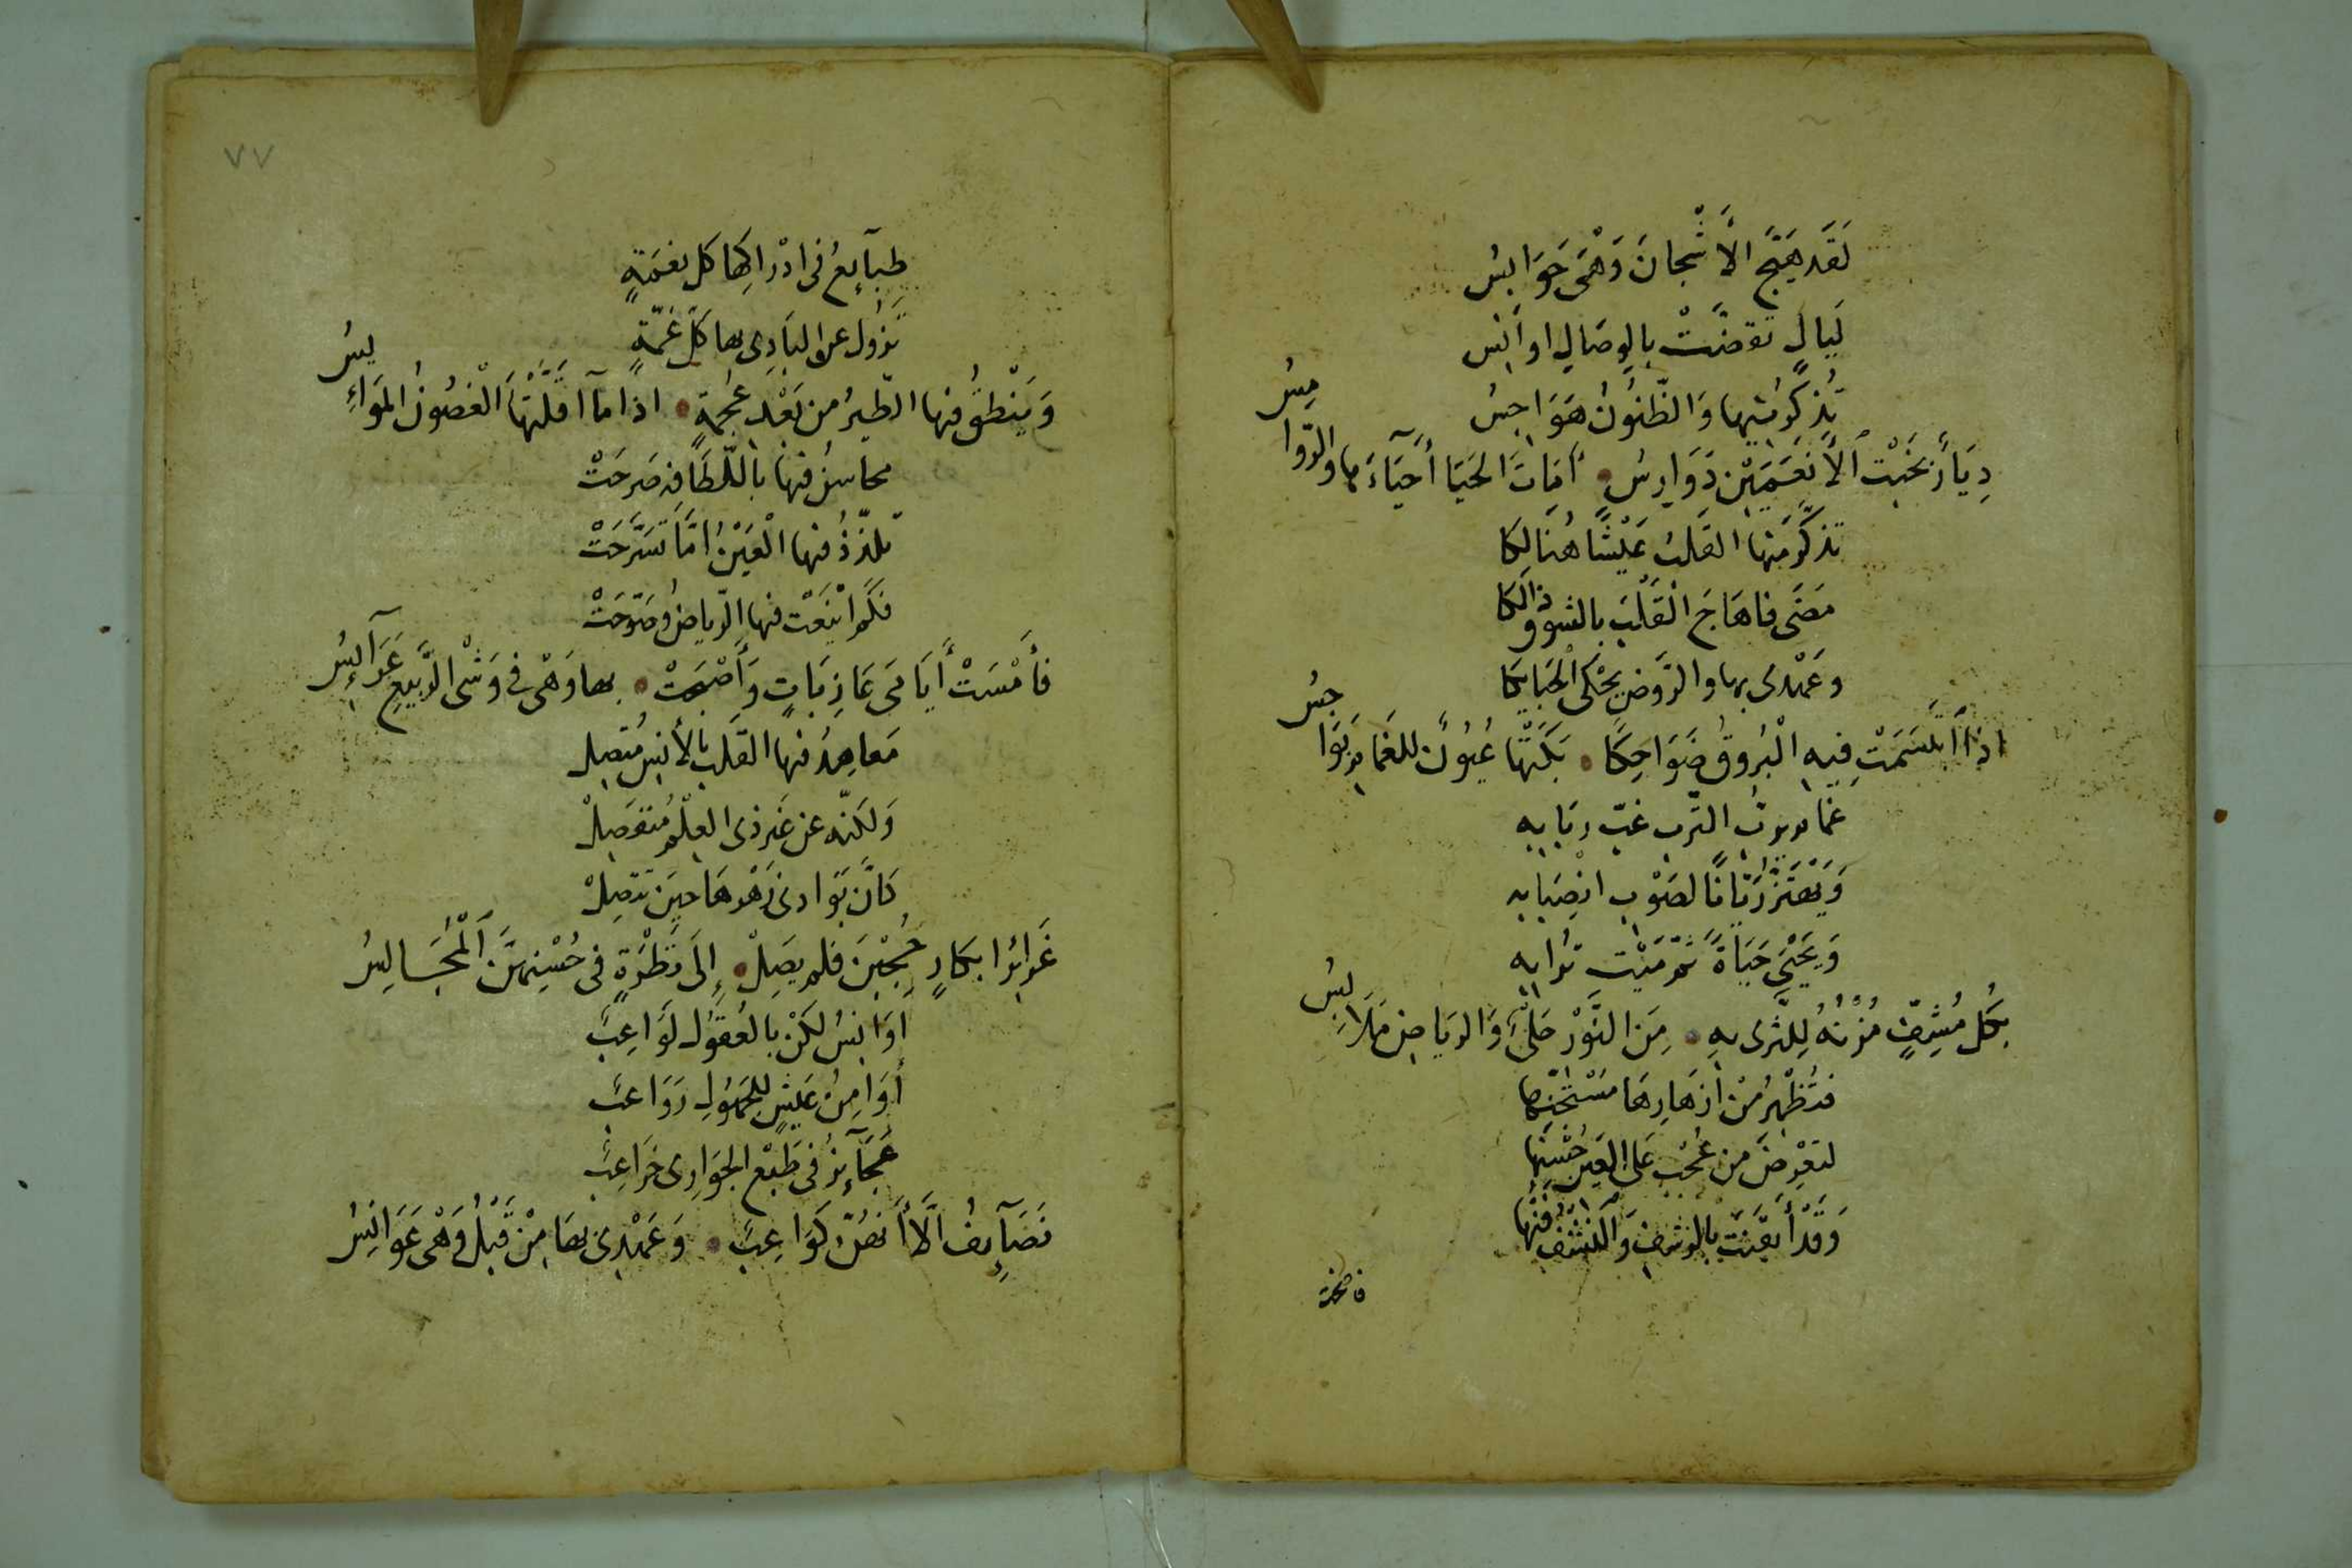 لَقَد هَيَّج الأَشْجانَ وَهْىَ حَوَابِسُ
لَيَالٍ تقضَّتْ بالوِصَالِ اوانِس
يُذكرنيها وَالظّنُونُ هَوَاجِسُ
دِيَارٌ بخَبْت الأَنعَمَيْنِ دَوَارِسُ • أمَاتَ الحَيَا أَحيَاءَها والرّوامِسُ
تذكَّر منها القَلبُ عَيْشًا هُنَالِكَا
مَضَى فاهَاجَ القَلْبَ بالشوق ذالكَا
وعَهْدى بها والرَّوض يحْكى الحَبَايكَا
اذا ابتسَمَتْ فيهِ الْبُروقُ ضَوَاحِكًا • بَكَتْها عُيُونٌ للغَمَايمِ بَوَاجِسُ
غمايم التّرب غبّ ربَابِهِ
وَيَهْتَزُّ رَيّانًا لصَوْبِ انْصِبَابِهِ
وَيَحْيَى حَيَاةً ثم مَيْت تُرابِهِ
بكُل مُشِفٍّ مُزنُهُ لِلثرى بهِ • مِنَ النَّوْر حَلْىٌ وَالرياضِ مَلَابِسُ
فتُظْهِرُ منْ أزهَارِهَا مسْتَجنّها
لتعْرِضَ من عُجْب عَلى العَين حُسْنَها
وَقَدْ أيقَنَتْ بالرشفِ وَالنشفِ
فاضحت
٧٧
طبَآيعُ فى ادْرَاكِها كل نعْمَةٍ
تزُول عن البَادِى بها كلّ غمّةٍ
وَيَنْطقُ فيها الطّيرُ من بَعْدِ عُجْمةٍ • اذا مآ اقلّتهَا الْغصُونُ المَوَايِسُ
محاسنُ فيها باللّطَافةِ صَرحَتْ
تلذّذُ فيها الْعَيْنُ امّا تسَرَّحَتْ
فكَم ايْنعَت فيها الرّياضُ وصَوّحَتْ
فأَمْسَتْ أيَامَى عَازِبَاتٍ وَأصْبَحَتْ • بها وَهْى فى وَشْى الرَّبيع عَرَآئِسُ
مَعاهِدُ فيها القَلب بالأنسِ مُتصِلْ
وَلكنّه عن غير ذى العِلْم مُنفصِلْ
كَانَّ بَوَادى زَهْوهَا حِينَ تتصِلْ
غَرايرُ ابكارٍ حُجِبْنَ فلم يصَلْ • إلَى نَظْرَةٍ فى حُسْنِهنَّ المُجَالِسُ
اوَانِسُ لكنْ بالعُقول لَوَاعِبُ
أوَامِنُ عَيشٍ للجَهُولِ رَوَاعبُ
عَجَآئِزُ فى طَبْع الجوَارِى خَرَاعِبُ
نصَآئِف الّا أنهُنّ كَوَاعِبُ • وَعَهْدى بها مِنْ قَبْلُ وَهْى عَوَانِسُ